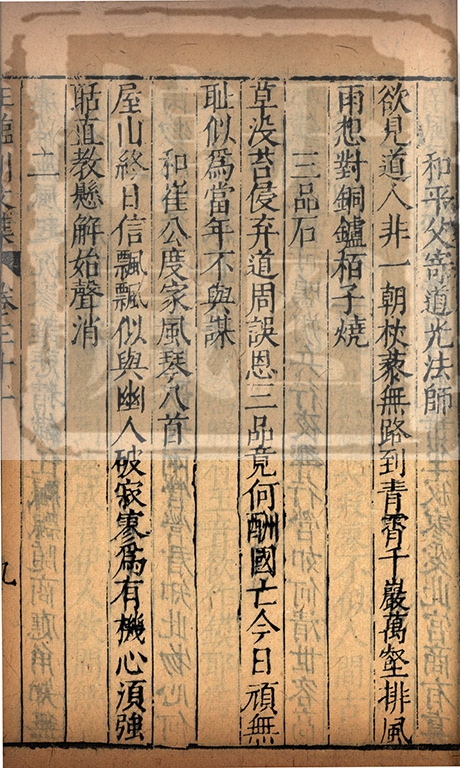 和平父寄道光法師
欲見道人非一朝杖藜無路到青霄千巖萬壑排風
雨想對銅鑪栢子燒
三品石
草没苔侵弃道周誤恩三品竟何酬國亡今日頑無
耻似爲當年不與謀
和崔公度家風琴八首
屋山終日信飄飄似與幽人破寂寥爲有機心須強
聒直教懸解始聲消
二
臨川文集 卷三十一 九